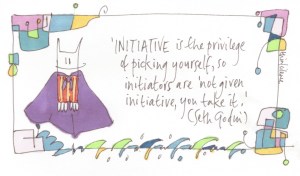 'INITIATIVE is the privilege
of picking yourself, so
initiators are 'not given
initiative, you take it.'
(Seth Godin)